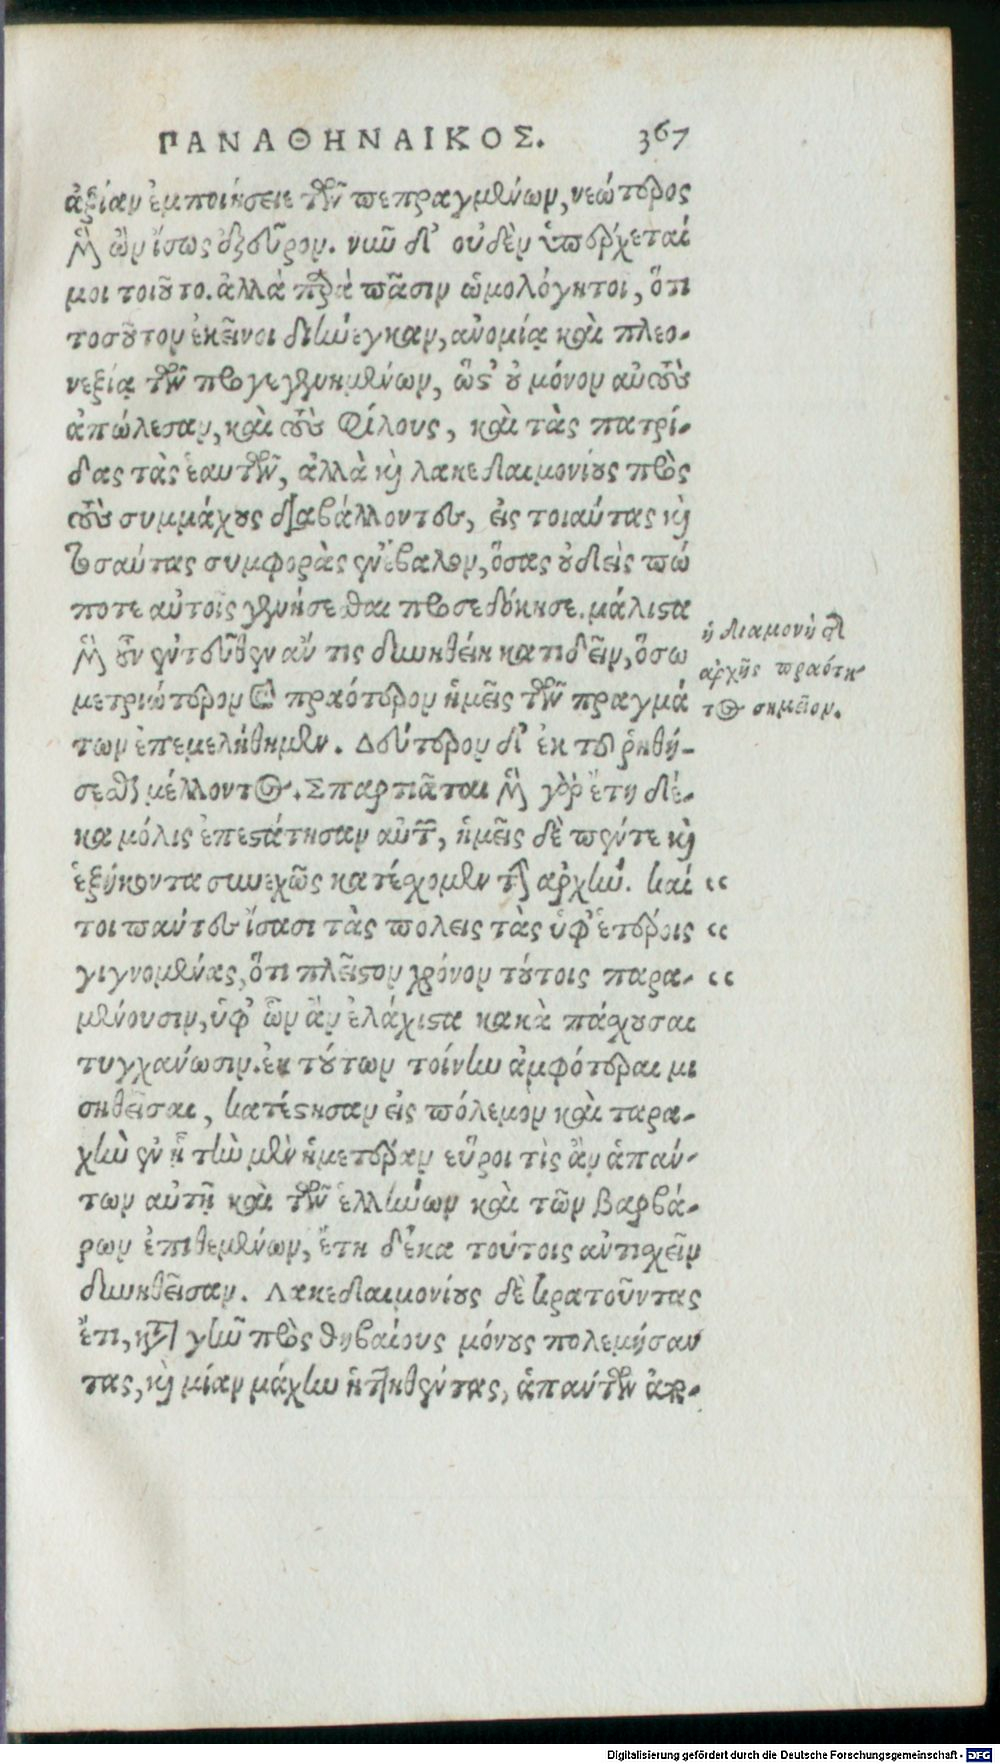 ΠΑΝΑΘΗΝΑΙΚΟΣ. 367
ἀξίαν ἐμποιήσειε τῶν πεπραγμένων, νεώτερος
μὲν ὢν ἴσως ἐξεῦρον. νῦν δ' οὐδὲν ὑπέρχεταί
μοι τοιοῦτο. ἀλλὰ παρὰ πᾶσιν ὡμολόγητοι, ὅτι
τοσοῦτον ἐκεῖνοι διήνεγκαν, ἀνομίᾳ καὶ πλεο-
νεξίᾳ τῶν προγεγενημένων, ὥστ' οὐ μόνον αὑτοὺς
ἀπώλεσαν, καὶ τοὺς φίλους, καὶ τὰς πατρί-
δας τὰς ἑαυτῶν, ἀλλὰ καὶ λακεδαιμονίους πρὸς
τοὺς συμμάχους διαβάλλοντες, εἰς τοιαύτας καὶ
τοσαύτας συμφορὰς ἐνέβαλον, ὅσας οὐδεὶς πώ
ποτε αὐτοῖς γενήσεσθαι προσεδόκησε. μάλιστα
μὲν οὖν ἐντεῦθεν ἄν τις δυνηθείη κατιδεῖν, ὅσω
μετριώτερον καὶ πραότερον ἡμεῖς τῶν πραγμά
των ἐπεμελήθημεν. Δεύτερον δ' ἐκ τοῦ ῥηθή-
σεσθαι μέλλοντος. Σπαρτιᾶται μὲν γὰρ ἔτη δέ-
κα μόλις ἐπεστάτησαν αὐτῶν, ἡμεῖς δὲ πέντε καὶ
ἑξήκοντα συνεχῶς κατέσχομεν τὴν ἀρχήν. καί ‹‹
τοι πάντες ἴσασι τὰς πόλεις τὰς ὑφ' ἑτέροις ‹‹
γιγνομένας, ὅτι πλεῖστον χρόνον τούτοις παρα- ‹‹
μένουσιν, ὑφ' ὧν ἂν ἐλάχιστα κακὰ πάσχουσαι
τυγχάνωσιν. ἐκ τούτων τοίνυν ἀμφότεραι μι
σηθεῖσαι, κατέστησαν εἰς πόλεμον καὶ ταρα-
χὴν ἐν ᾗ τὴν μὲν ἡμετέραν εὕροι τὶς ἂν ἁπάν-
των αὐτῇ καὶ τῶν ἑλλήνων καὶ τῶν βαρβά-
ρων ἐπιθεμένων, ἔτη δέκα τούτοις ἀντισχεῖν
δυνηθεῖσαν. Λακεδαιμονίους δὲ κρατοῦντας
ἔτι, κατὰ γῆν πρὸς θηβαίους μόνους πολεμήσαν
τας, καὶ μίαν μάχην ἡττηθέντας, ἁπάντων ἀπο-
ἡ διαμονὴ τῆς
ἀρχῆς πραότη-
τος σημεῖον.
Digitalisierung gefördert durch die Deutsche Forschungsgemeinschaft - DFG